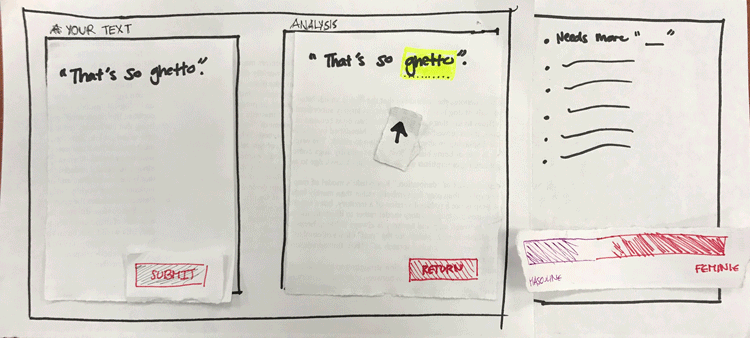 * YOUR TEXT
"That's so ghetto."
SUBMIT
ANALYSIS
"That's so ghetto".
RETURN
• Needs more "__"
MASCULINE
FEMININE